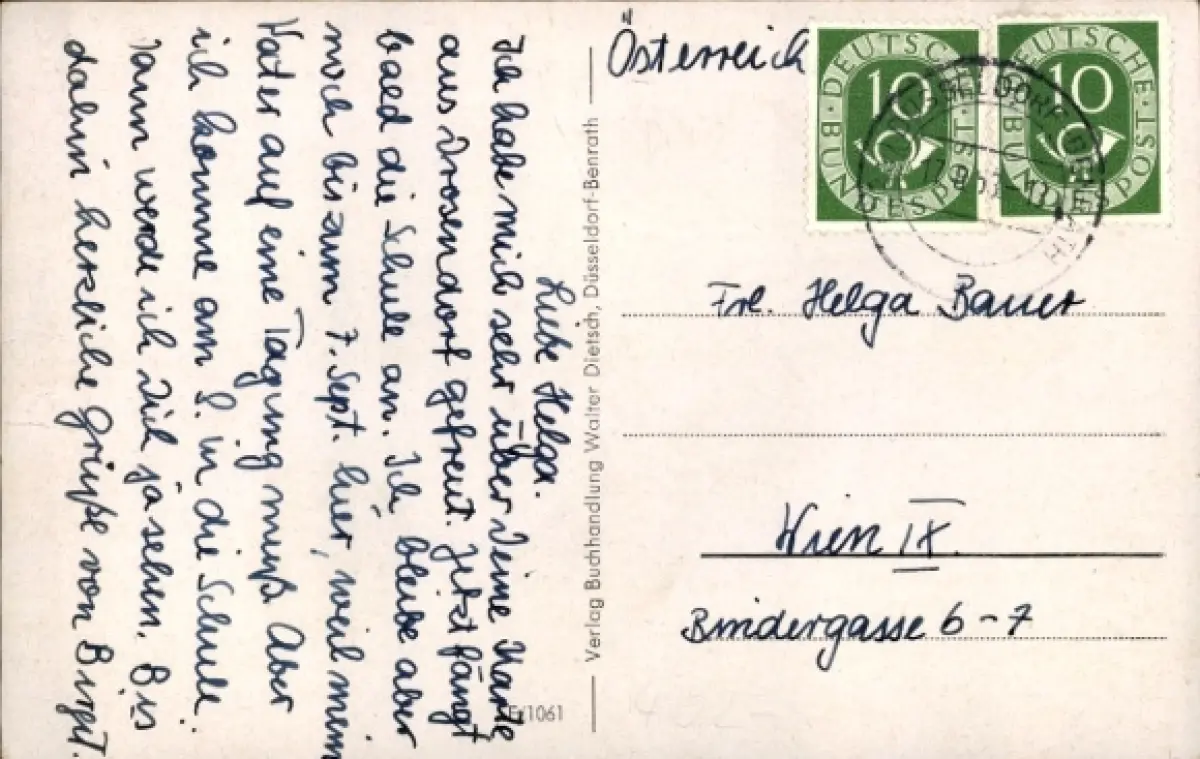 Liebe Helga.
Ich habe mich sehr über Deine Karte
aus Drosendorf gefreut. Jetzt fängt
bald die Schule an. Ich bleibe aber
noch bis zum 7. Sept. hier, weil mein
Vater auf eine Tagung muß. Aber
ich komme am 8. in die Schule.
Dann werde ich Dich ja sehen. Bis
dahin herzliche Grüße von Birgit.
E/1061
Verlag Buchhandlung Walter Dietsch, Düsseldorf-Benrath
Österreich
DEUTSCHE BUNDESPOST
10
DEUTSCHE BUNDESPOST
10
DÜSSELDORF-BENRATH
Frl. Helga Bauer
Wien IX.
Bindergasse 6-7